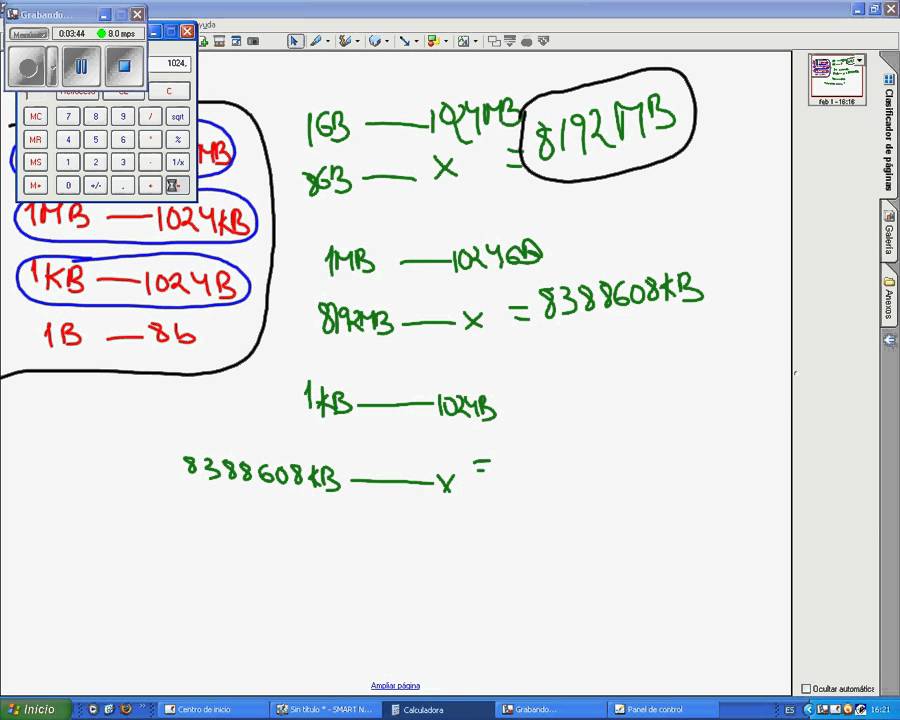 Grabando...
Menú
0:03:44
8.0 mps
yuda
1024,
Retroceso CE C
MC 7 8 9 / sqrt
MR 4 5 6 * %
MS 1 2 3 - 1/x
M+ 0 +/- , + =
MB
1MB — 1024KB
1KB — 1024B
1B — 8b
1GB — 1024MB
8GB — X = 8192MB
1MB — 1024GB
8192MB — X = 8388608KB
1KB — 1024B
8388608KB — X =
feb 1 - 16:16
Clasificador de páginas
Galería
Anexos
Ampliar página
Ocultar automátic
Inicio
Centro de inicio
Sin título * - SMART N...
Calculadora
Grabando...
Panel de control
ES
16:21